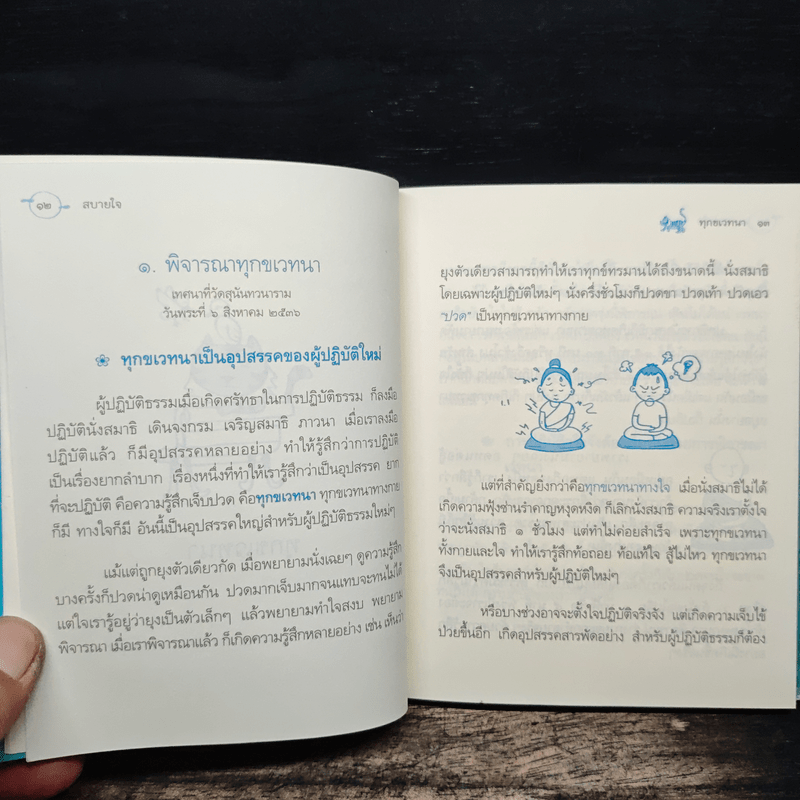 ๑๒ สบายใจ
๑. พิจารณาทุกขเวทนา
เทศนาที่วัดสุนันทวนาราม
วันพระที่ ๖ สิงหาคม ๒๕๓๖
ทุกขเวทนาเป็นอุปสรรคของผู้ปฏิบัติใหม่
ผู้ปฏิบัติธรรมเมื่อเกิดศรัทธาในการปฏิบัติธรรม ก็ลงมือ
ปฏิบัตินั่งสมาธิ เดินจงกรม เจริญสมาธิ ภาวนา เมื่อเราลงมือ
ปฏิบัติแล้ว ก็มีอุปสรรคหลายอย่าง ทำให้รู้สึกว่าการปฏิบัติ
เป็นเรื่องยากลำบาก เรื่องหนึ่งที่ทำให้เรารู้สึกว่าเป็นอุปสรรค ยาก
ที่จะปฏิบัติ คือความรู้สึกเจ็บปวด คือทุกขเวทนา ทุกขเวทนาทางกาย
ก็มี ทางใจก็มี อันนี้เป็นอุปสรรคใหญ่สำหรับผู้ปฏิบัติธรรมใหม่ๆ
แม้แต่ถูกยุงตัวเดียวกัด เมื่อพยายามนั่งเฉยๆ ดูความรู้สึก
บางครั้งก็ปวดน่าดูเหมือนกัน ปวดมากเจ็บมากจนแทบจะทนไม่ได้
แต่ใจเรารู้อยู่ว่ายุงเป็นตัวเล็กๆ แล้วพยายามทำใจสงบ พยายาม
พิจารณา เมื่อเราพิจารณาแล้ว ก็เกิดความรู้สึกหลายอย่าง เช่น เห็นว่า
ทุกขเวทนา ๑๓
ยุงตัวเดียวสามารถทำให้เราทุกข์ทรมานได้ถึงขนาดนี้ นั่งสมาธิ
โดยเฉพาะผู้ปฏิบัติใหม่ๆ นั่งครึ่งชั่วโมงก็ปวดขา ปวดเท้า ปวดเอว
"ปวด" เป็นทุกขเวทนาทางกาย
แต่ที่สำคัญยิ่งกว่าคือทุกขเวทนาทางใจ เมื่อนั่งสมาธิไม่ได้
เกิดความฟุ้งซ่านรำคาญหงุดหงิด ก็เลิกนั่งสมาธิ ความจริงเราตั้งใจ
ว่าจะนั่งสมาธิ ๑ ชั่วโมง แต่ทำไม่ค่อยสำเร็จ เพราะทุกขเวทนา
ทั้งกายและใจ ทำให้เรารู้สึกท้อถอย ท้อแท้ใจ สู้ไม่ไหว ทุกขเวทนา
จึงเป็นอุปสรรคสำหรับผู้ปฏิบัติใหม่ๆ
หรือบางช่วงอาจจะตั้งใจปฏิบัติจริงจัง แต่เกิดความเจ็บไข้
ป่วยขึ้นอีก เกิดอุปสรรคสารพัดอย่าง สำหรับผู้ปฏิบัติธรรมก็ต้อง